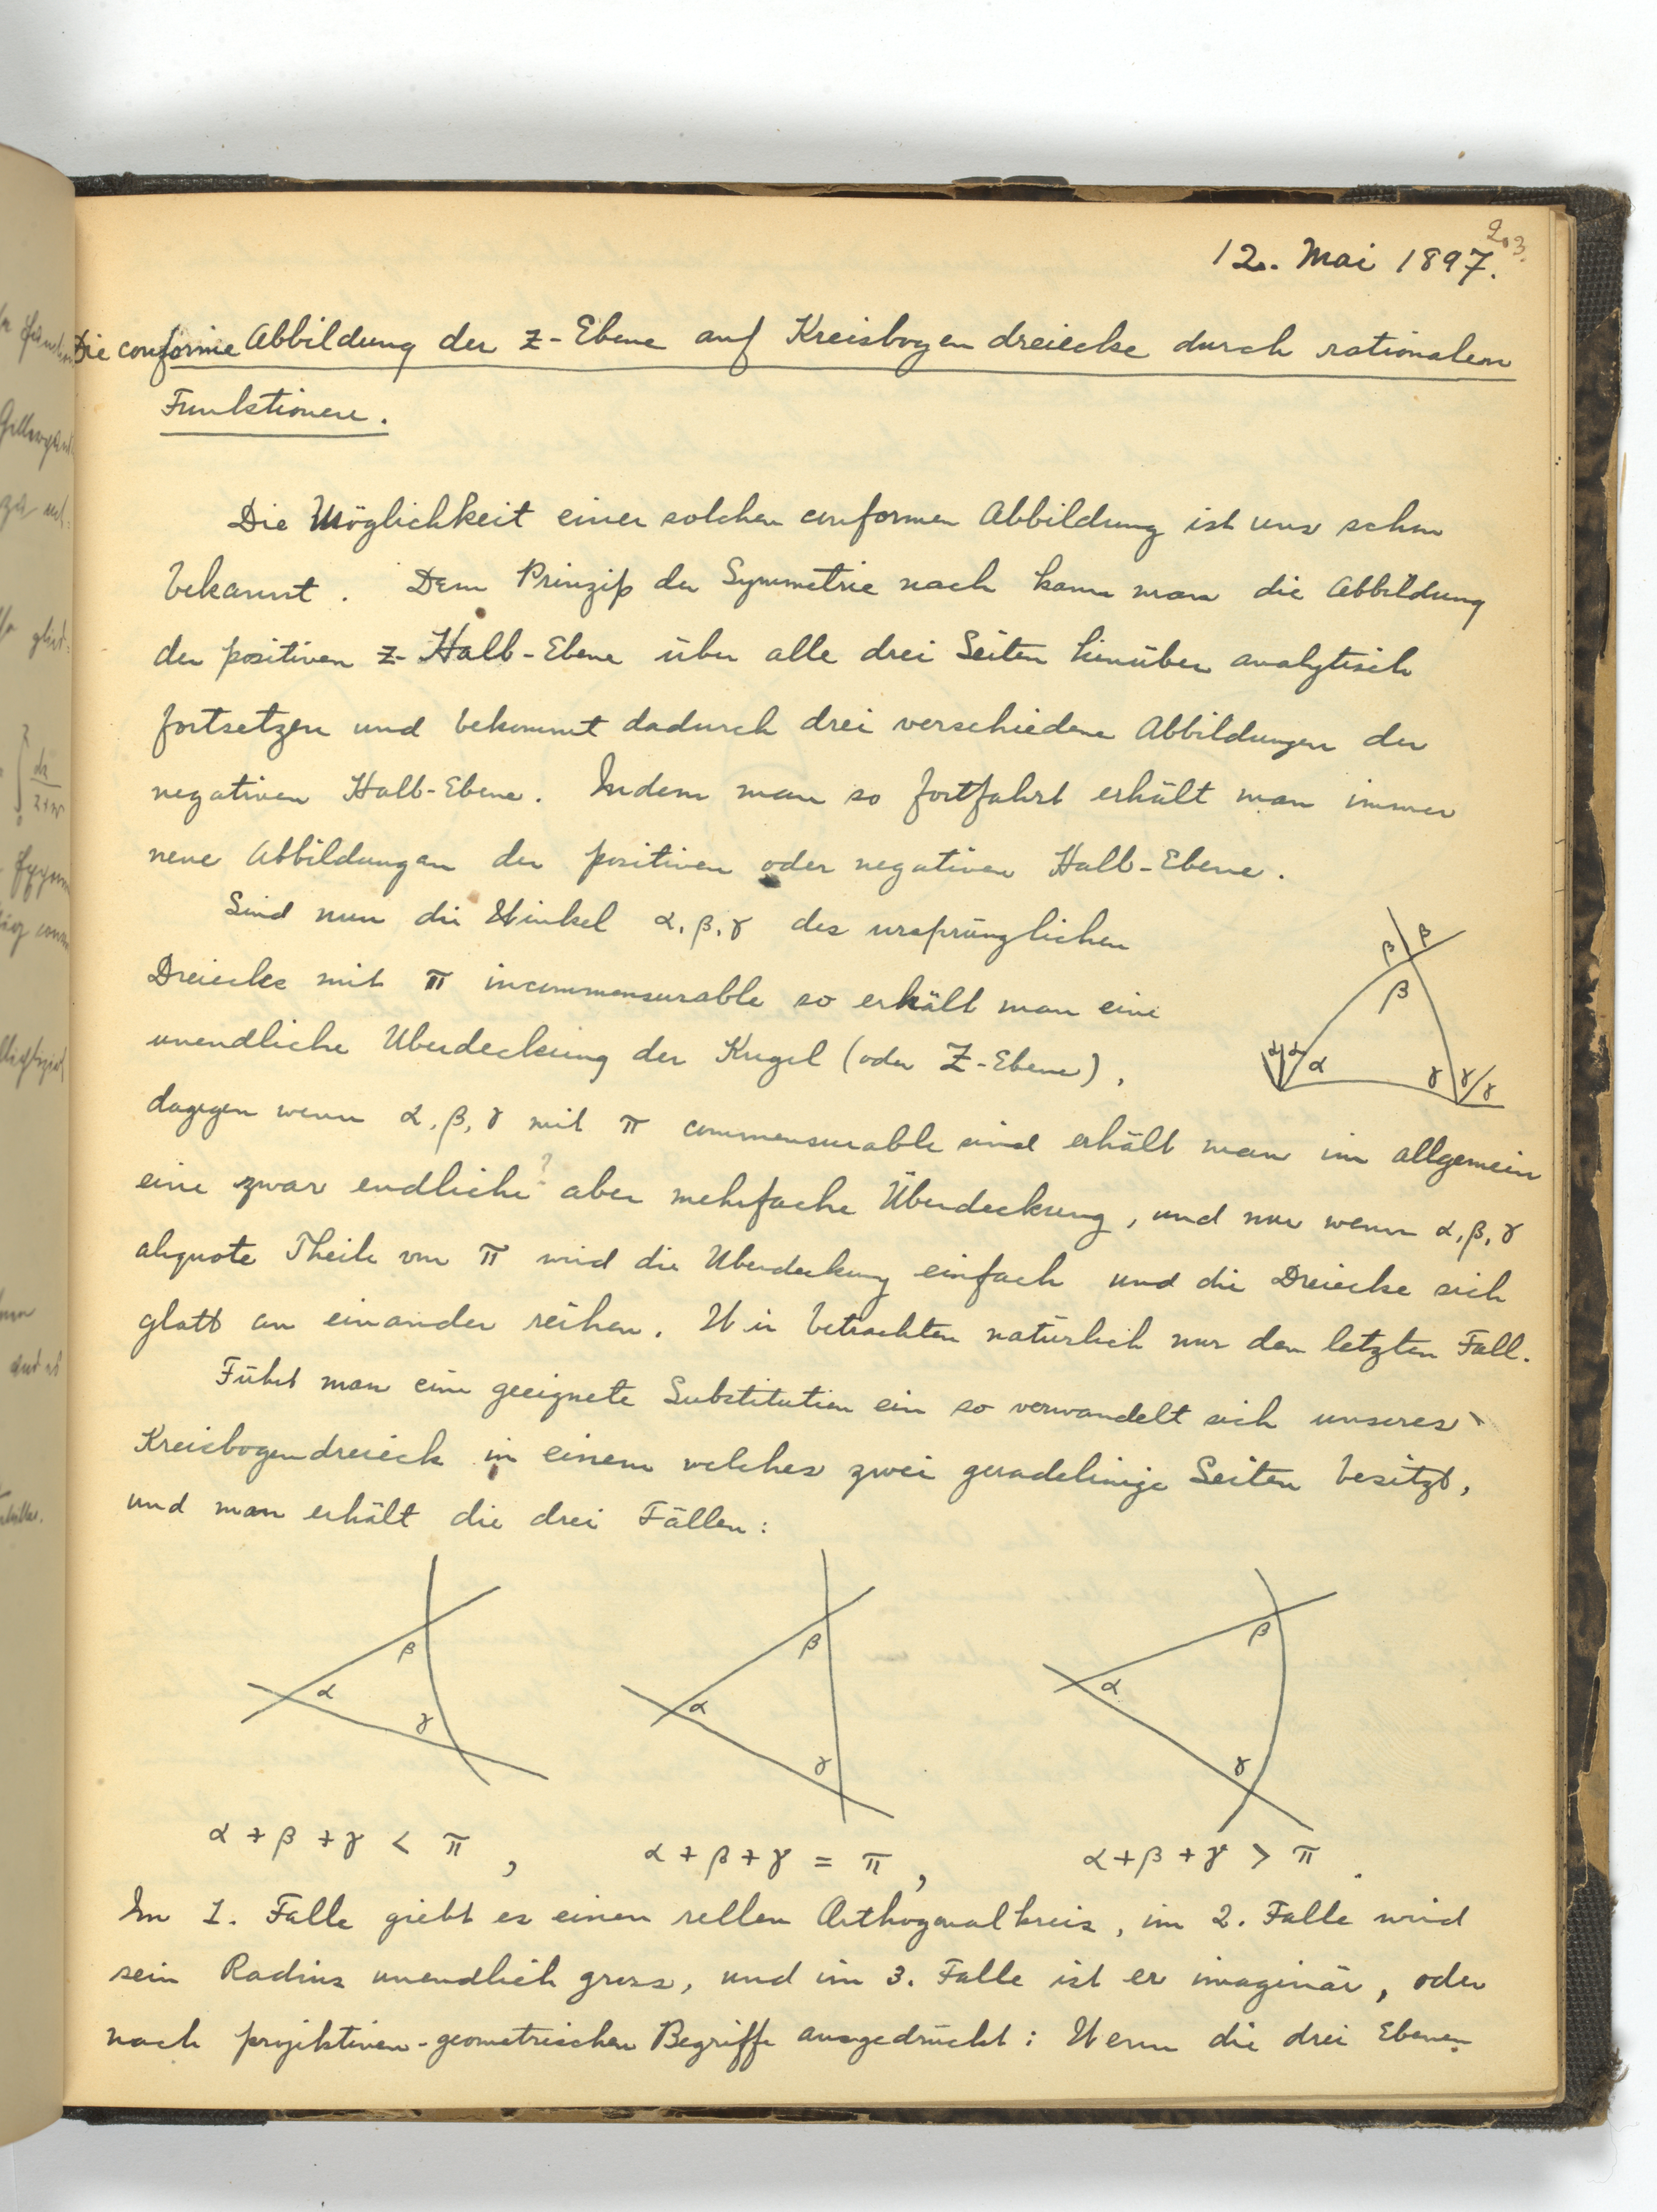 203.
12. Mai 1897.
Die conforme Abbildung der z-Ebene auf Kreisbogendreiecke durch rationalen
Funktionen.
Die Möglichkeit einer solchen conformen Abbildung ist uns schon
bekannt. Dem Prinzip der Symmetrie nach kann man die Abbildung
der positiven z-Halb-Ebene über alle drei Seiten hinüber analytisch
fortsetzen und bekommt dadurch drei verschiedene Abbildungen der
negativen Halb-Ebene. Indem man so fortfahrt erhält man immer
neue Abbildungen der positiven oder negativen Halb-Ebene.
Sind nun die Winkel α, β, γ des ursprünglichen
Dreiecks mit π incommensurable so erhält man eine
unendliche Überdeckung der Kugel (oder Z-Ebene),
dagegen wenn α, β, γ mit π commensurable sind erhält man im allgemein
eine zwar endliche? aber mehrfache Überdeckung, und nur wenn α, β, γ
aliquote Theile von π wird die Überdeckung einfach und die Dreiecke sich
glatt an einander reihen. Wir betrachten natürlich nur den letzten Fall.
β β
β
α α α γ γ γ
Führt man eine geeignete Substitution ein so verwandelt sich unseres
Kreisbogendreieck in einem welches zwei geradelinige Seiten besitzt,
und man erhält die drei Fällen:
β α γ
β α γ
β α γ
α + β + γ < π , α + β + γ = π , α + β + γ > π .
Im 1. Falle giebt es einen rellen Orthogonalkreis, im 2. Falle wird
sein Radius unendlich gross, und im 3. Falle ist er imaginär, oder
nach projektiven-geometrischen Begriffe ausgedrückt: Wenn die drei Ebenen